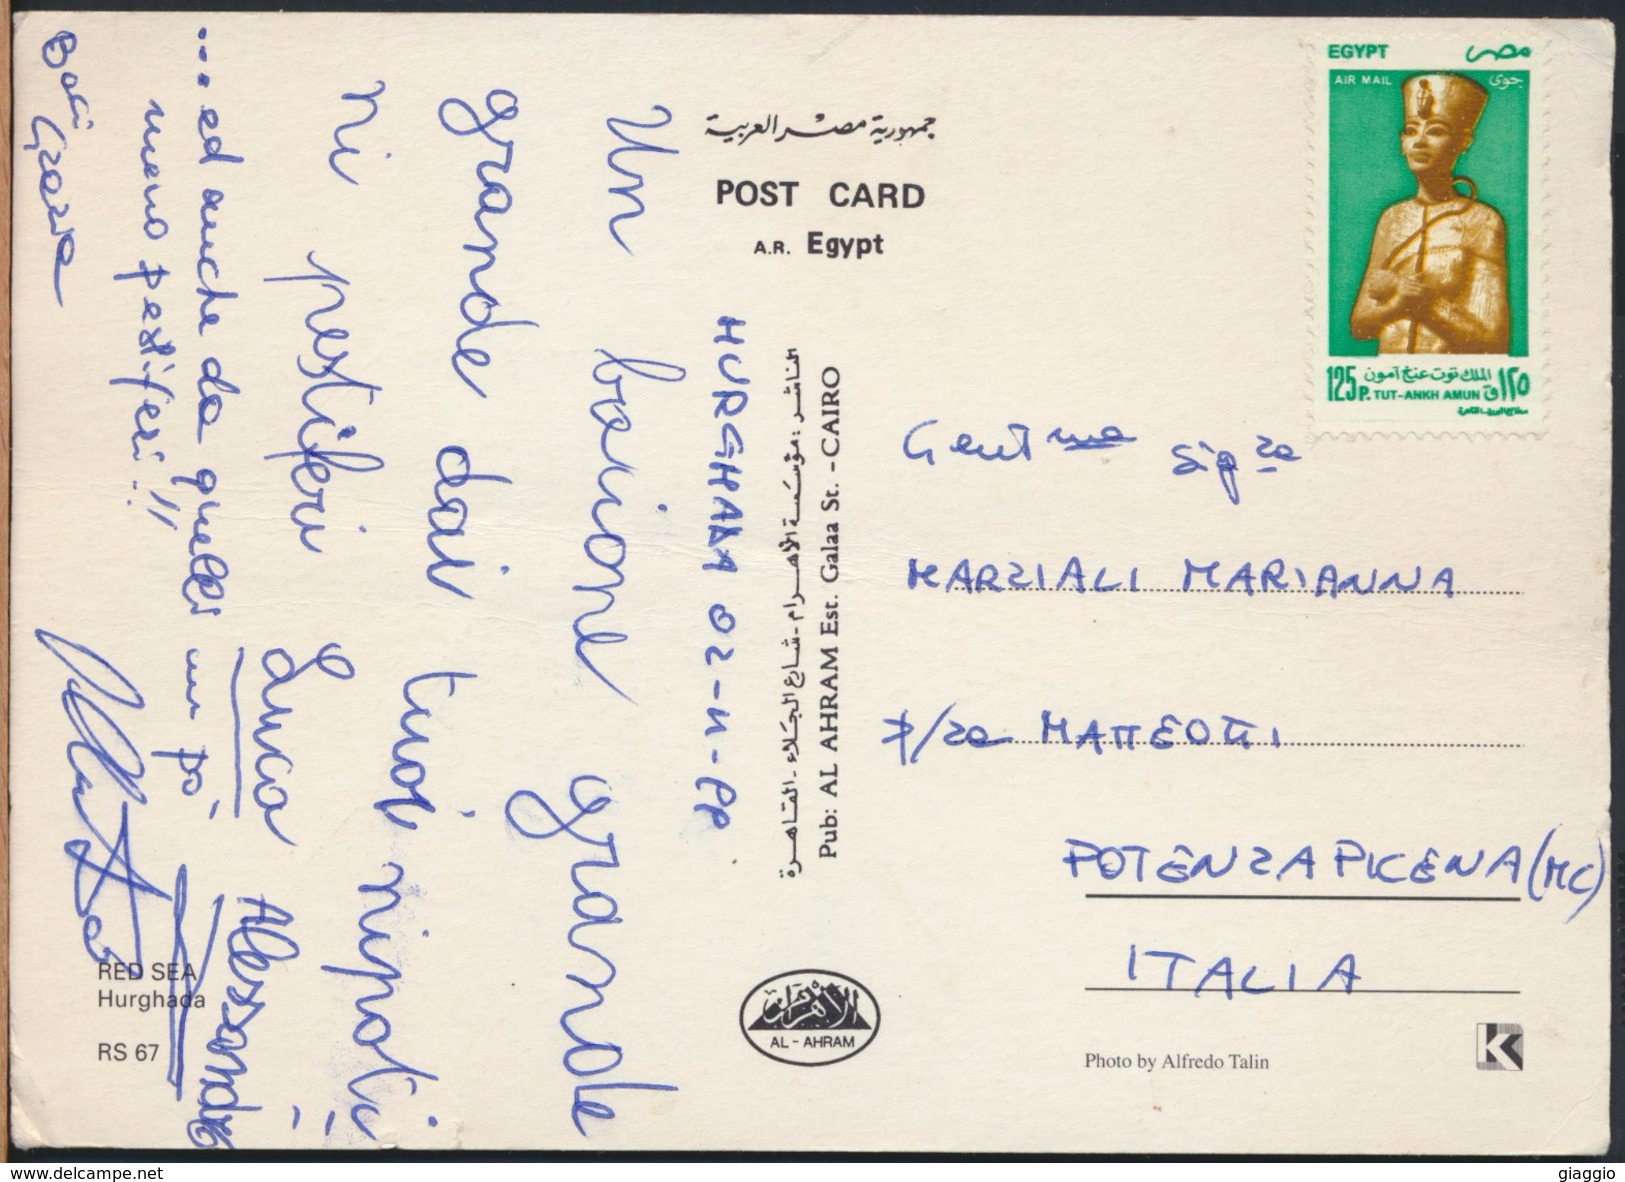 EGYPT مصر
AIR MAIL جوى
الملك توت عنخ آمون
125P. TUT-ANKH AMUN ١٢٥ق
جمهورية مصر العربية
POST CARD
A.R. Egypt
HURGHADA 02-11-99
Un bacione grande
grande dai tuoi nipoti
ni pestiferi Luca Alessandro
...ed anche da quelli un po'
meno pestiferi!!
Baci
الناشر: مؤسسة الأهرام - شارع الجلاء - القاهرة
Pub: AL AHRAM Est. Galaa St. - CAIRO
Gent.ma Sig.ra
MARZIALI MARIANNA
P/za MATTEOTTI
POTENZA PICENA (MC)
ITALIA
RED SEA
Hurghada
RS 67
الأهرام
AL - AHRAM
Photo by Alfredo Talin
K
www.delcampe.net
giaggio